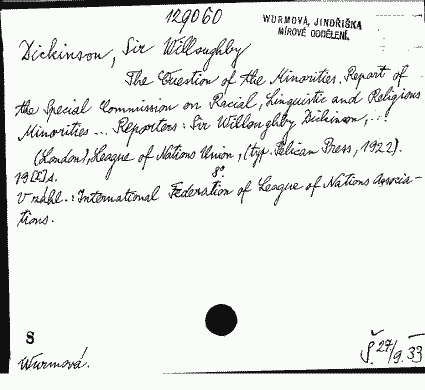 129060
WURMOVÁ, JINDŘIŠKA
MÍROVÉ ODDĚLENÍ.
Dickinson, Sir Willoughby
The Question of the Minorities. Report of
the Special Commission on Racial, Linguistic and Religious
Minorities ... Reporters: Sir Willoughby Dickinson, ...
(London), League of Nations Union, (typ. Pelican Press, 1922).
19 [I] s. 8°
V záhl.: International Federation of League of Nations Associa-
tions.
8
Wurmová.
Š. 27/9.33